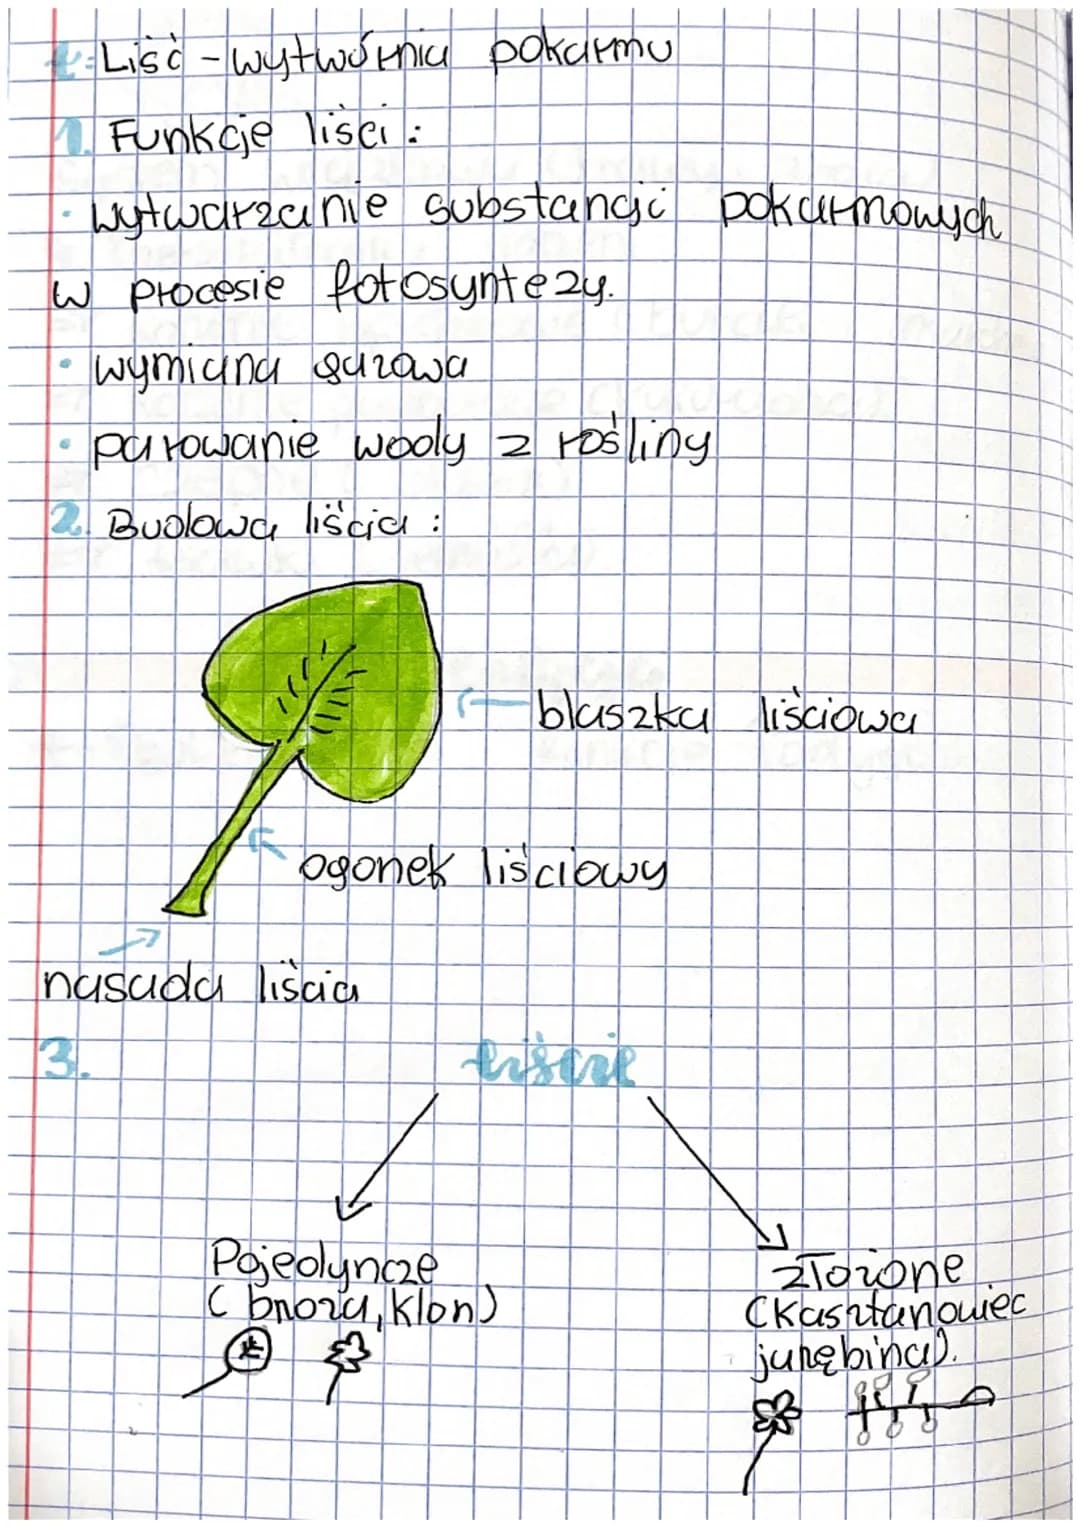 t: Liść - wytwórnia pokarmu
1. Funkcje liści:
• wytwarzanie substancji pokarmowych
w procesie fotosyntezy.
• wymiana gazowa
• parowanie wody z rośliny
2. Budowa liścia:
blaszka liściowa
ogonek liściowy
nasada liścia
3. liście
Pojedyncze
(brzoza, klon)
złożone
(kasztanowiec
jarzębina).